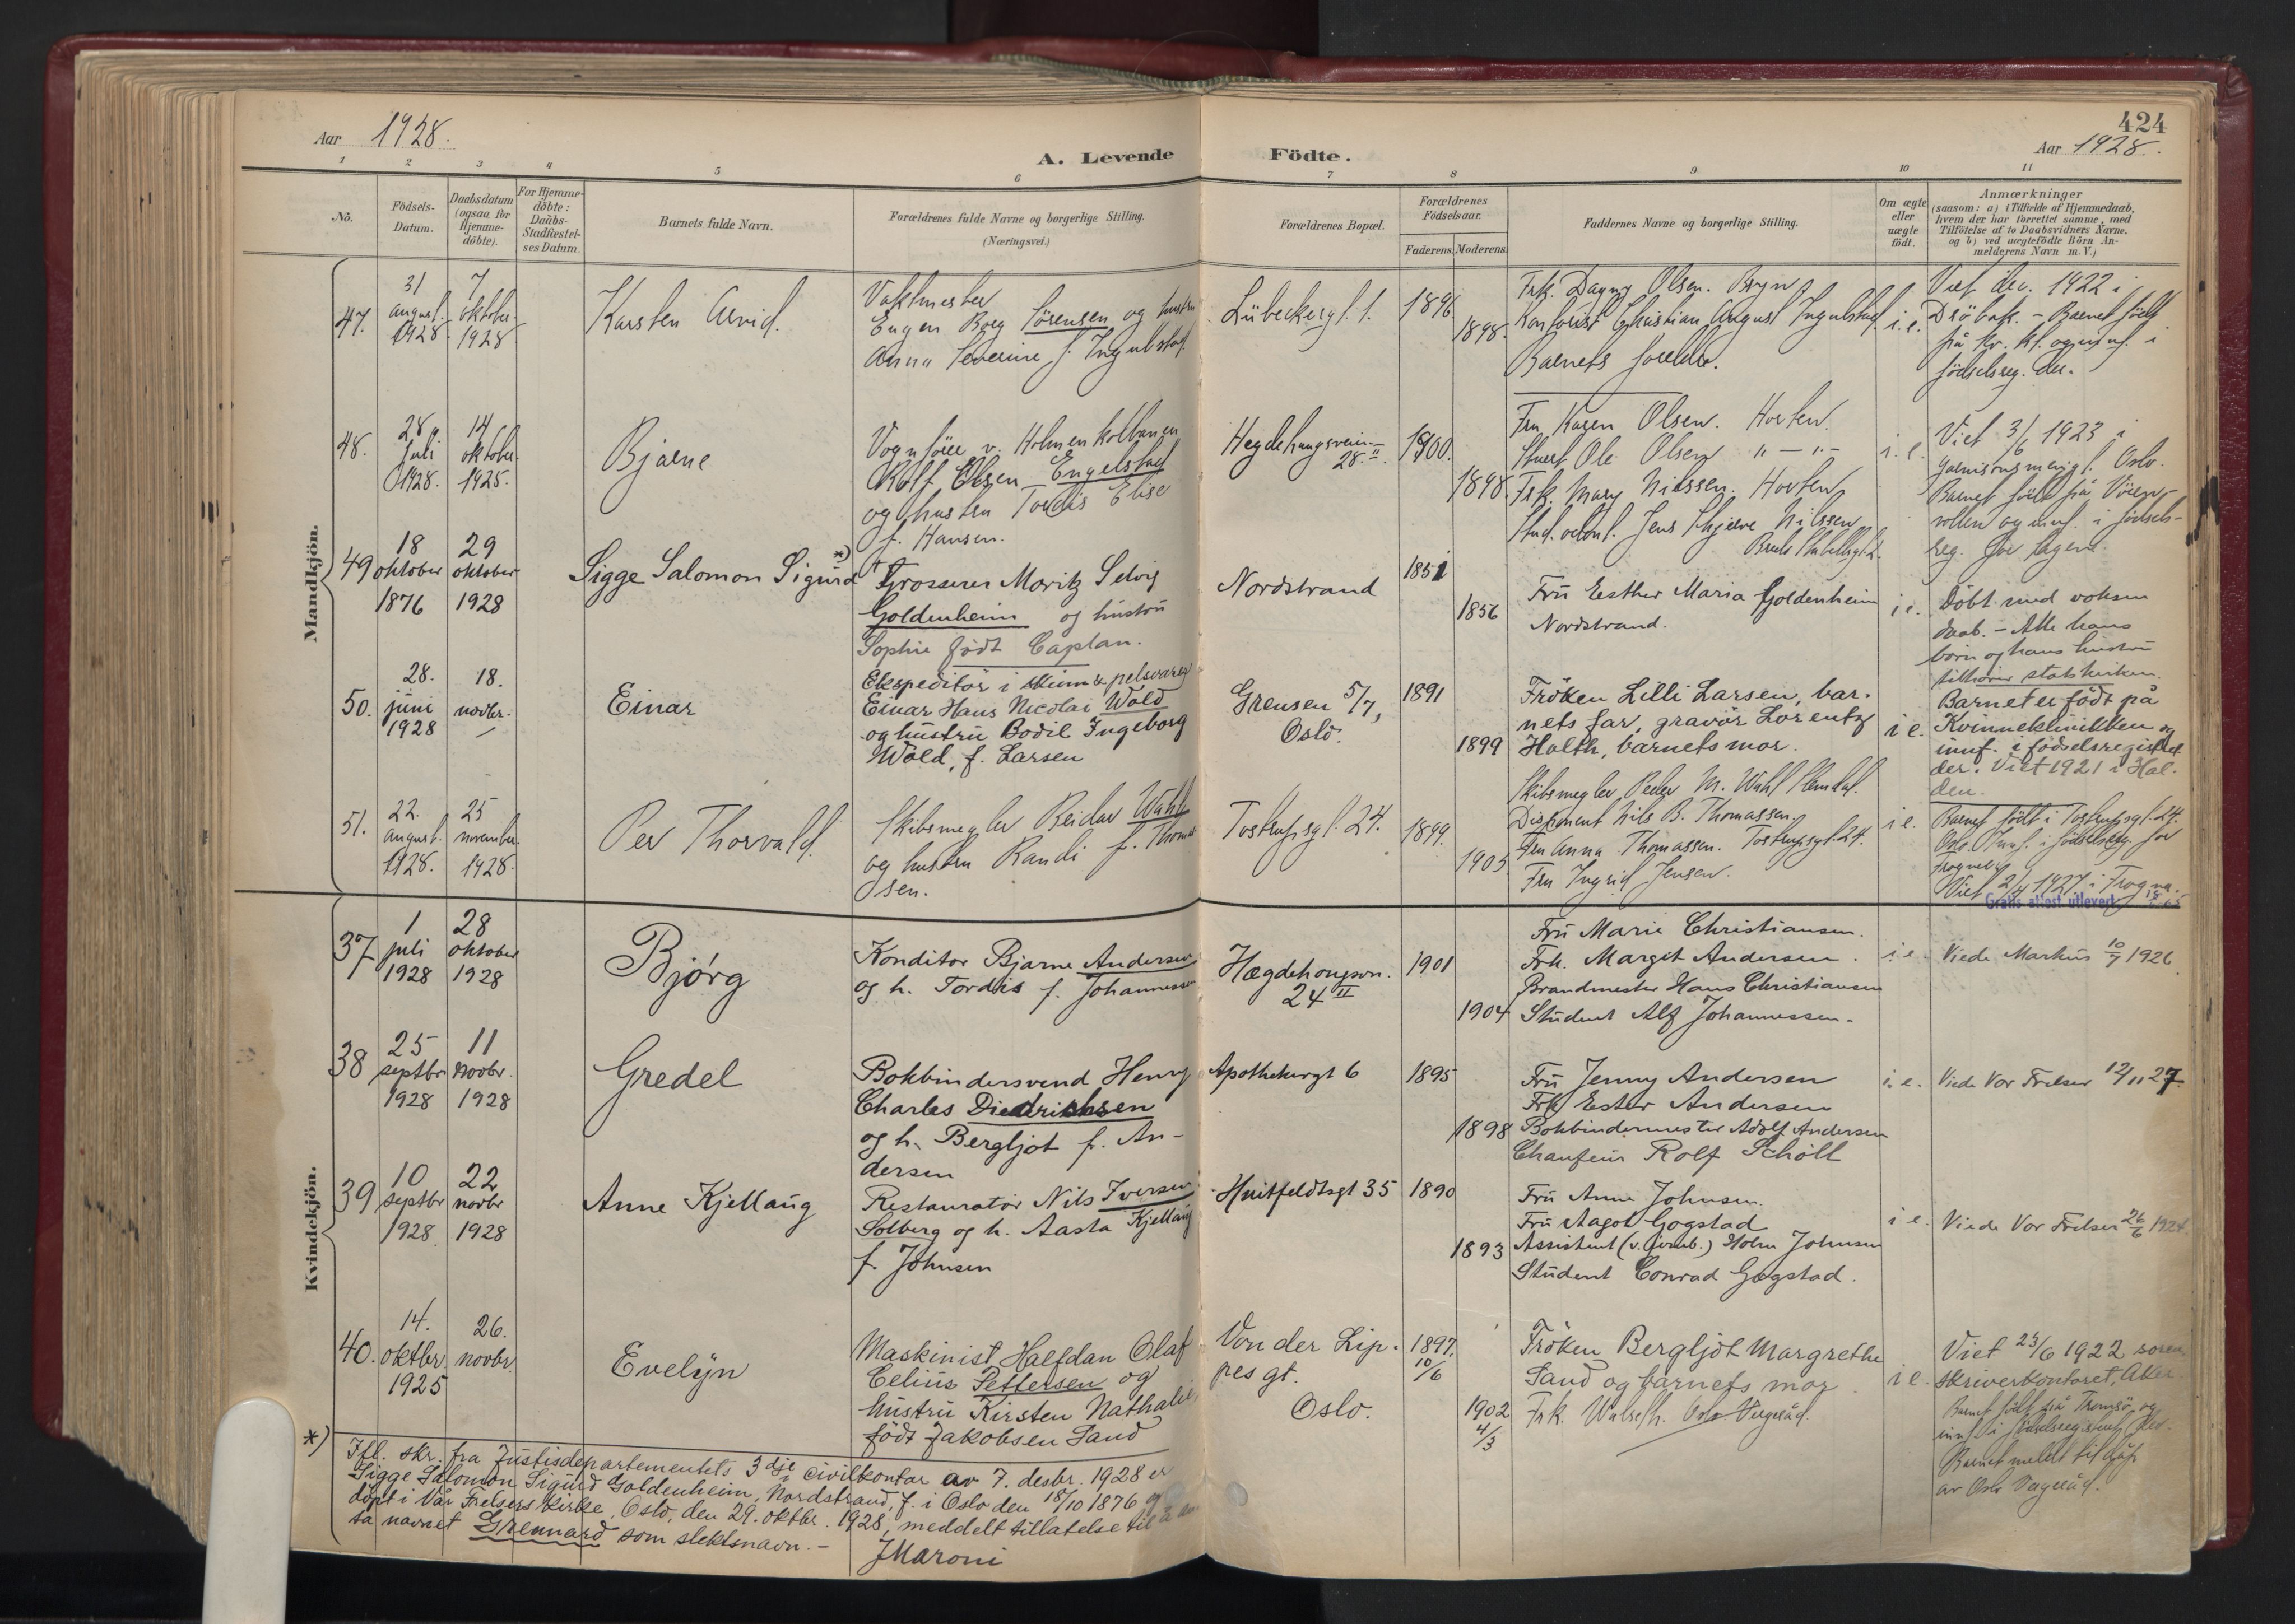 424
Aar 1928.
A. Levende Födte.
Aar 1928.
1 2 3 4 5 6 7 8 9 10 11
No.
Födsels-
Datum.
Daabsdatum
(ogsaa for
Hjemme-
döbte).
For Hjemme-
döbte:
Daabs-
Stadfestel-
ses Datum.
Barnets fulde Navn.
Forældrenes fulde Navne og borgerlige Stilling.
(Næringsvei.)
Forældrenes Bopæl.
Forældrenes
Födselsaar.
Faderens. Moderens.
Faddernes Navne og borgerlige Stilling.
Om ægte
eller
uægte
födt.
Anmærkninger
(saasom: a) i Tilfælde af Hjemmedaab,
hvem der har forrettet samme, med
Tilföielse af to Daabsvidners Navne.
og b) ved uægtefödte Börn An-
melderens Navn m. V.)
Mandkjön.
47.
31
august
1928
7
oktober
1928
Karsten Arvid.
Vaktmester
Eugen Borg Sörensen og hustru
Anna Severine f. Ingulstad.
Lübeckergt. 1.
1896
1898.
Frk. Dagny Olsen. Bryn
Kontorist Christian August Ingulstad
Barnets foreldre.
i. e.
Viet des. 1922 i
Dröbak. - Barnet født
på kv. kl. og innf. i
födselsreg. der.
48.
28
Juli
1928.
14
oktober
1925.
Bjarne
Vognförer v. Holmenkolbanen
Rolf Olsen Engelstad
og hustru Tordis Elise
f. Hansen.
Hegdehaugsveien
28 II
1900.
1898.
Fru Karen Olsen. Horten.
Stuert Ole Olsen " - " -
Frk. Mary Nilssen. Horten
Stud. odont. Jens Nilssen
i. e.
Viet 3/6 1923 i
Garnisonsmenigh. Oslo.
Barnet født på
vollen og innf. i födsels-
reg. for
49
18
oktober
1876
29
oktober
1928
Sigge Salomon Sigurd *)
Grosserer Moritz Selvig
Goldenheim og hustru
Sophie födt Caplan.
Nordstrand
1851
1856
Fru Esther Maria Goldenheim
Nordstrand.
i e.
Döbt med voksen
daab. - Alle hans
börn og hans hustru
tilhörer statskirken.
50.
28.
juni
1928
18.
novbr.
Einar
Ekspeditör i skinn & pelsvarer
Einar Hans Nicolai Wold
og hustru Bodil Ingeborg
Wold, f. Larsen
Grensen 5/7,
Oslo.
1891
1899
Fröken Lilli Larsen, bar-
nets far, gravör Lorentz
Holth, barnets mor.
i e.
Barnet er födt på
Kvinneklinikken og
innf. i födselsregistret
der. Viet 1921 i Hal-
den.
51.
22.
august.
1928.
25
november.
1928.
Per Thorvald.
Skibsmegler Reidar Wahl
og hustru Randi f. Thomas-
sen.
Tostrupsgt. 24.
1899.
1905
Skibsmegler Peder M. Wahl
Disponent Nils B. Thomassen
Fru Anna Thomassen. Tostrupsgt. 24.
Fru Ingrid Jensen.
i e.
Barnet födt i Tostrupsgt. 24.
Oslo. Innf. i födselsreg. for
Frogner
Viet 2/4 1927 i Frogner.
Gratis attest utlevert
Kvindekjön.
37
1
juli
1928
28
oktober
1928
Bjørg
Konditor Bjarne Andersen
og h. Tordis f. Johannessen
Hægdehougsvn.
24 II
1901
1904
Fru Marie Christiansen.
Frk. Margit Andersen.
Brandmester Hans Christiansen
Student Alf Johannessen.
i e.
Viede Markus 10/7 1926
38
25
septbr
1928
11
novbr.
1928
Gredel
Bokbindersvend Henry
Charles Diedrichsen
og h. Bergljot f. An-
dersen
Apothekergt 6
1895
1898
Fru Jenny Andersen
Frk Ester Andersen
Bokbindermester Adolf Andersen
Chauffeur Rolf Schöll
i. e.
Viede Vor Frelser 12/11 27.
39
10
septbr
1928
22
novbr
1928
Anne Kjellaug
Restauratør Nils Iversen
Solberg og h. Aasta Kjellaug
f. Johnsen
Huitfeldtsgt 35
1890
1893
Fru Anna Johnsen.
Fru Aagot Gogstad
Assistent (v. jernb.) Holm Johnsen
Student Conrad Gogstad.
i e.
Viede Vor Frelser 26/6 1924.
40.
14.
oktbr.
1925
26.
novbr.
Evelyn
Maskinist Halfdan Olaf
Celius Pettersen og
hustru Kirsten Nathalie
födt Jakobsen Sand
Von der Lip-
pes gt.
Oslo.
1897.
10/6
1902
4/3
Fröken Bergljot Margrethe
Sand og barnets mor.
Frk. Oslo Vergeråd.
i e.
Viet 23/6 1922 soren-
skriverkontoret, Aker.
Barnet født på Tromsö og
innf. i födselsregistret der.
Barnet meldt til dåp
av Oslo Vergeråd.
*)
Ifl. skr. fra Justisdepartementets 3dje civilkontor av 7. desbr. 1928 er
Sigge Salomon Sigurd Goldenheim, Nordstrand, f. i Oslo den 18/10 1876 og
döpt i Vår Frelsers kirke, Oslo, den 29. oktbr. 1928, meddelt tillatelse til å an-
ta navnet Grennard som slektsnavn. -
J Maroni